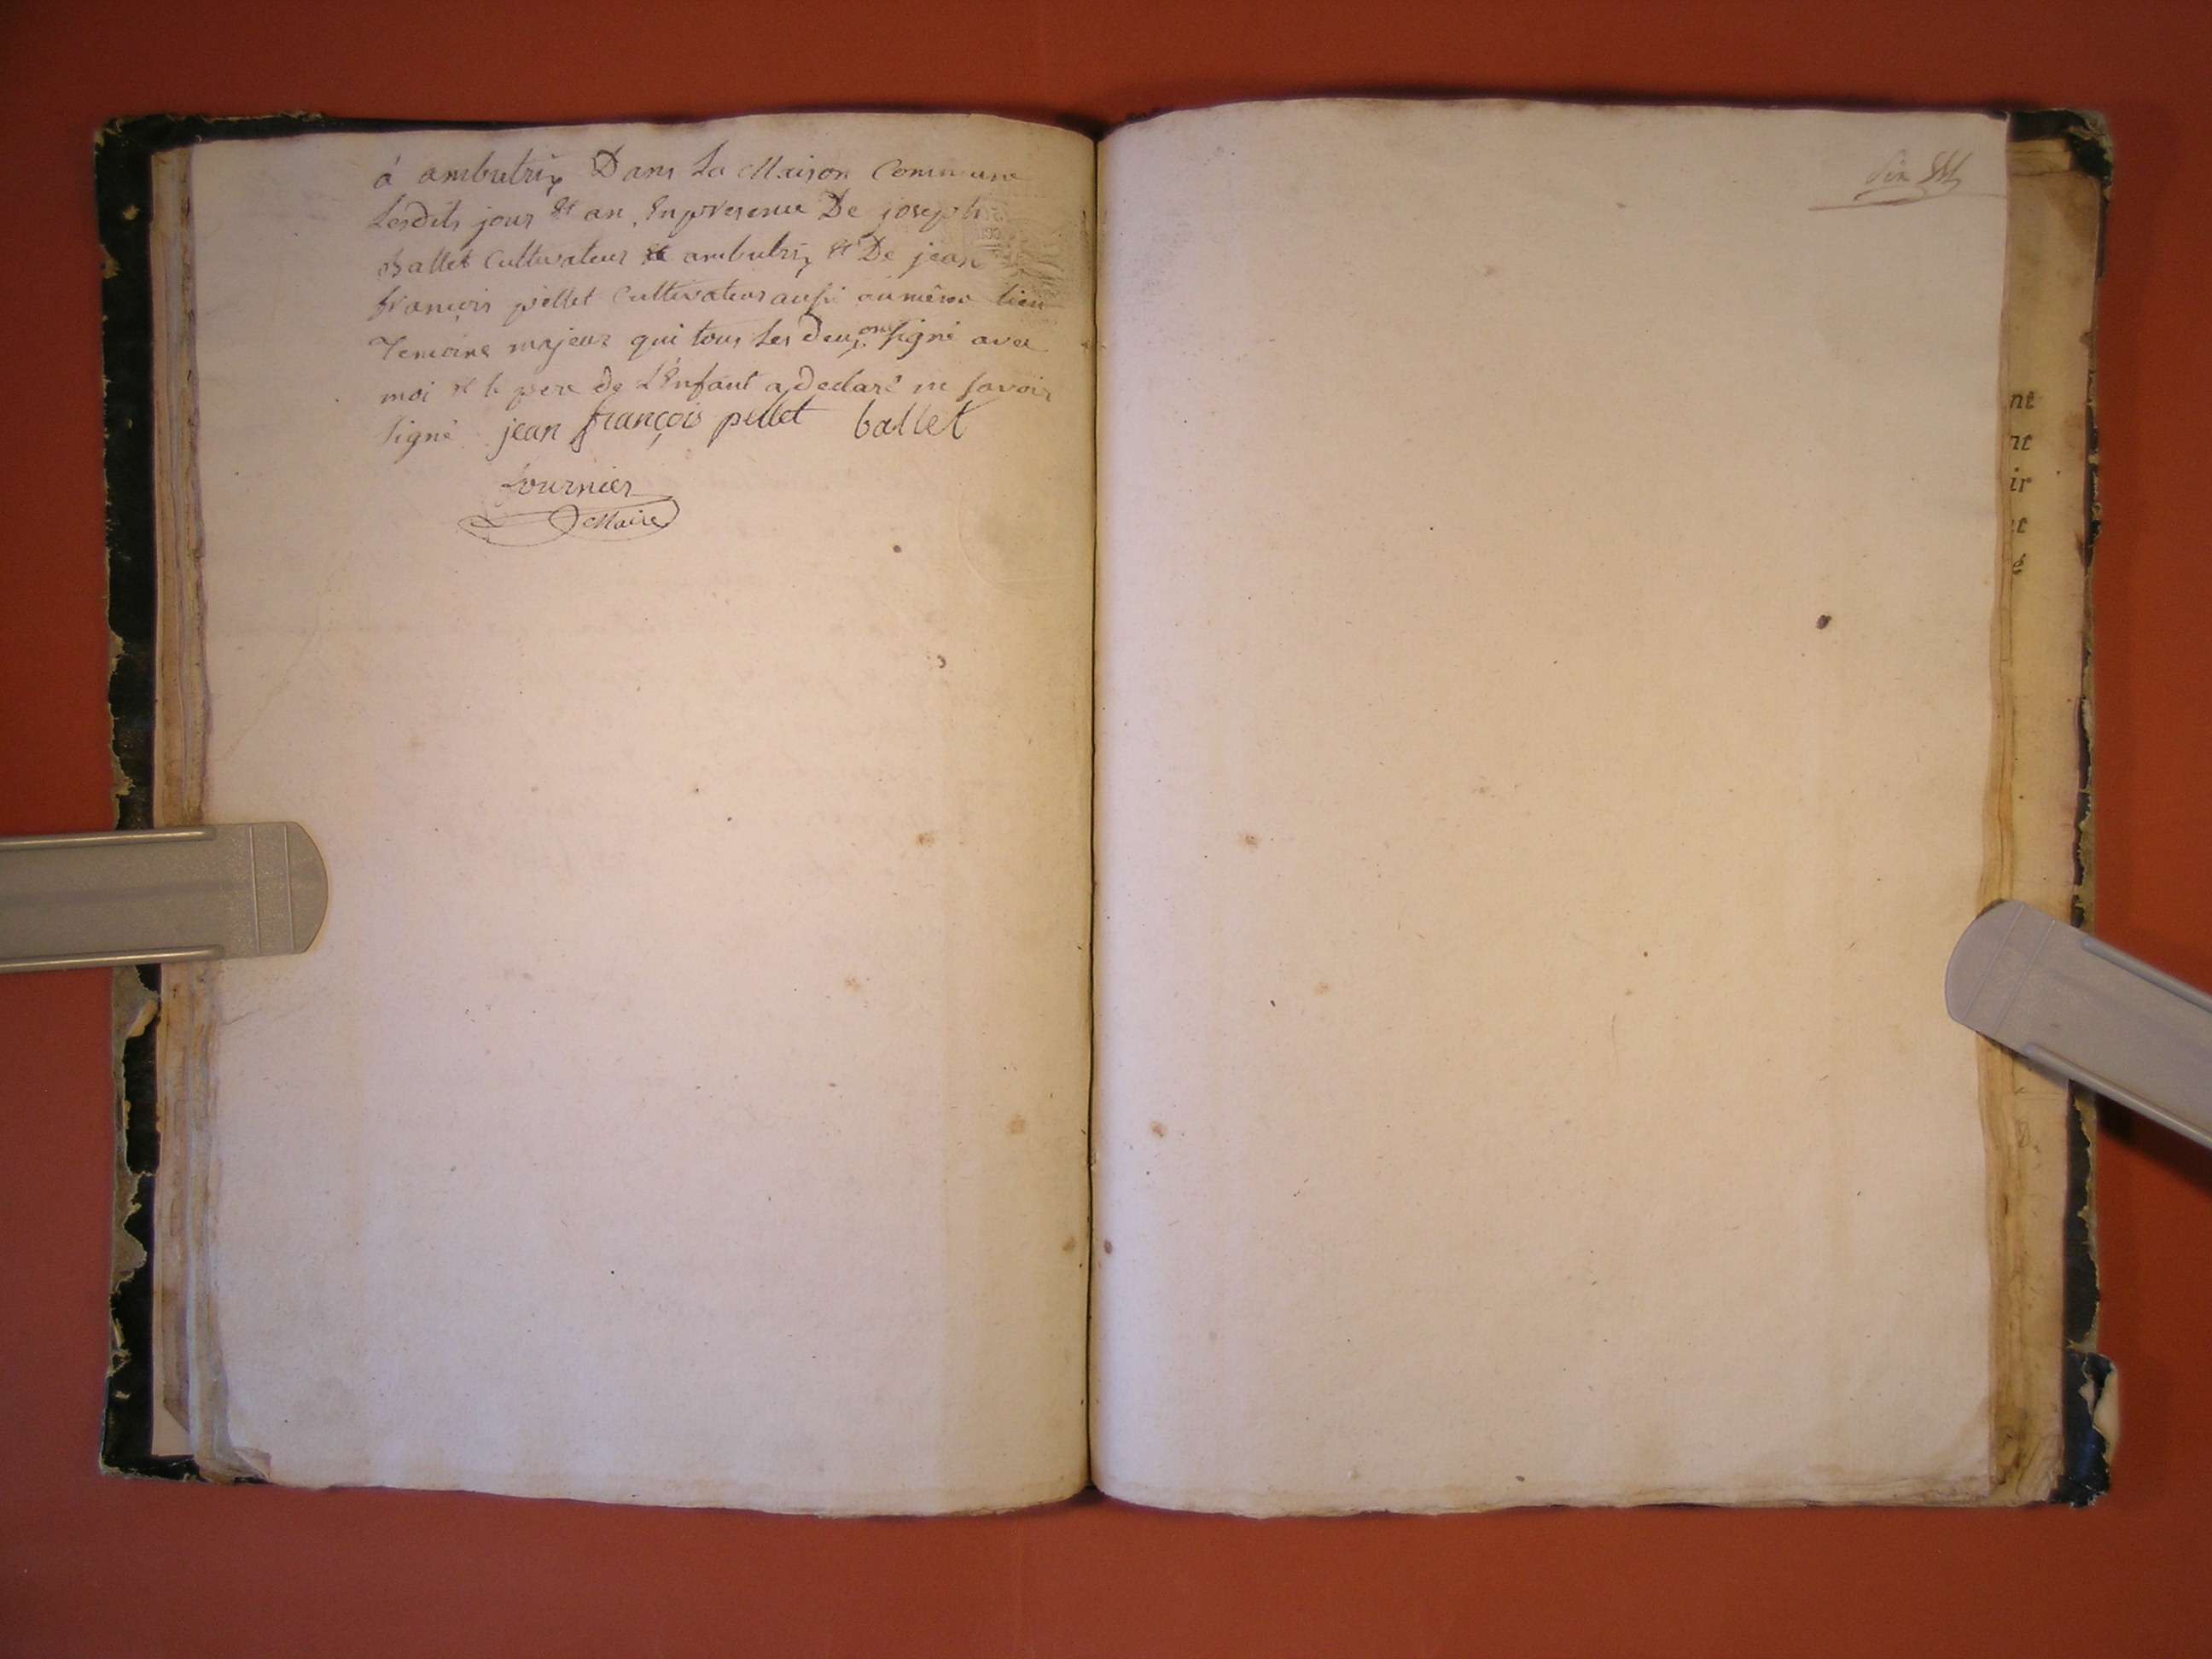 à ambutrix Dans La Maison Commune
Lesdits jour & an, En presence De joseph
Ballet Cultivateur a ambutrix & De jean
françois pellet Cultivateur aussi au même lieu
Temoins majeur qui tous Les deux ont signé avec
moi & le pere de L'Enfant a declaré ne savoir
signé jean françois pellet ballet
fournier
Maire
nt
nt
ir
et
é